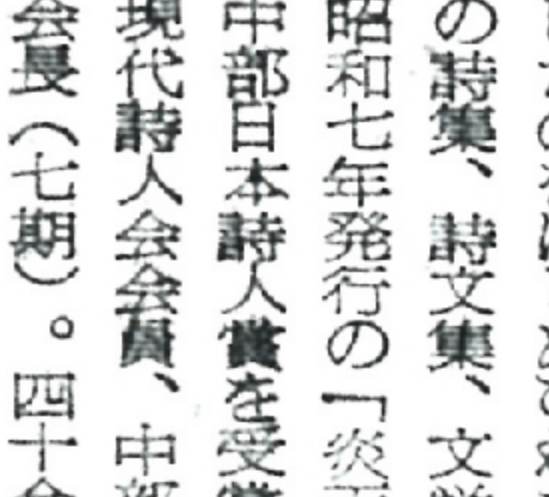 の詩集、詩文集、文
昭和七年発行の「炎
中部日本詩人賞を受
現代詩人会会員、中部
会長（七期）。四十